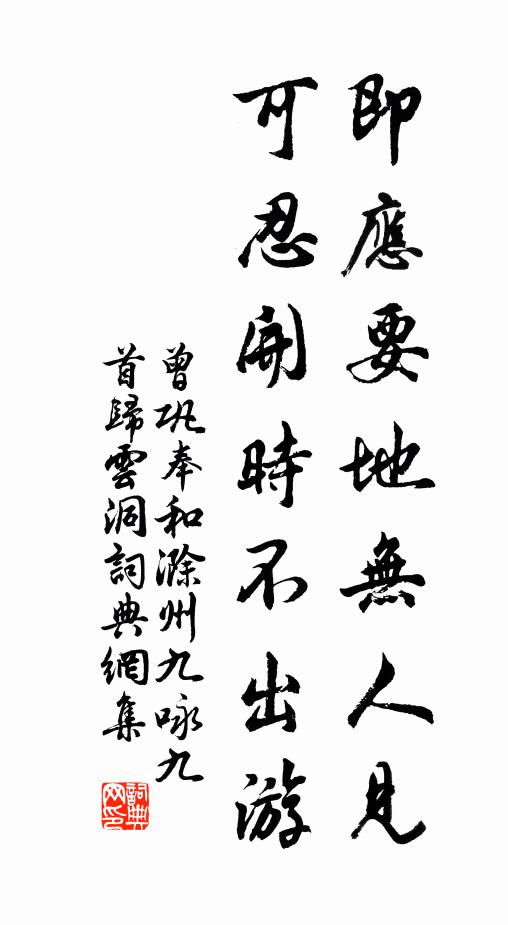 即應要地無人見
可忍開時不出游
曾巩奉和滁州九咏九
首歸雲洞詞典網集
詞典
网印